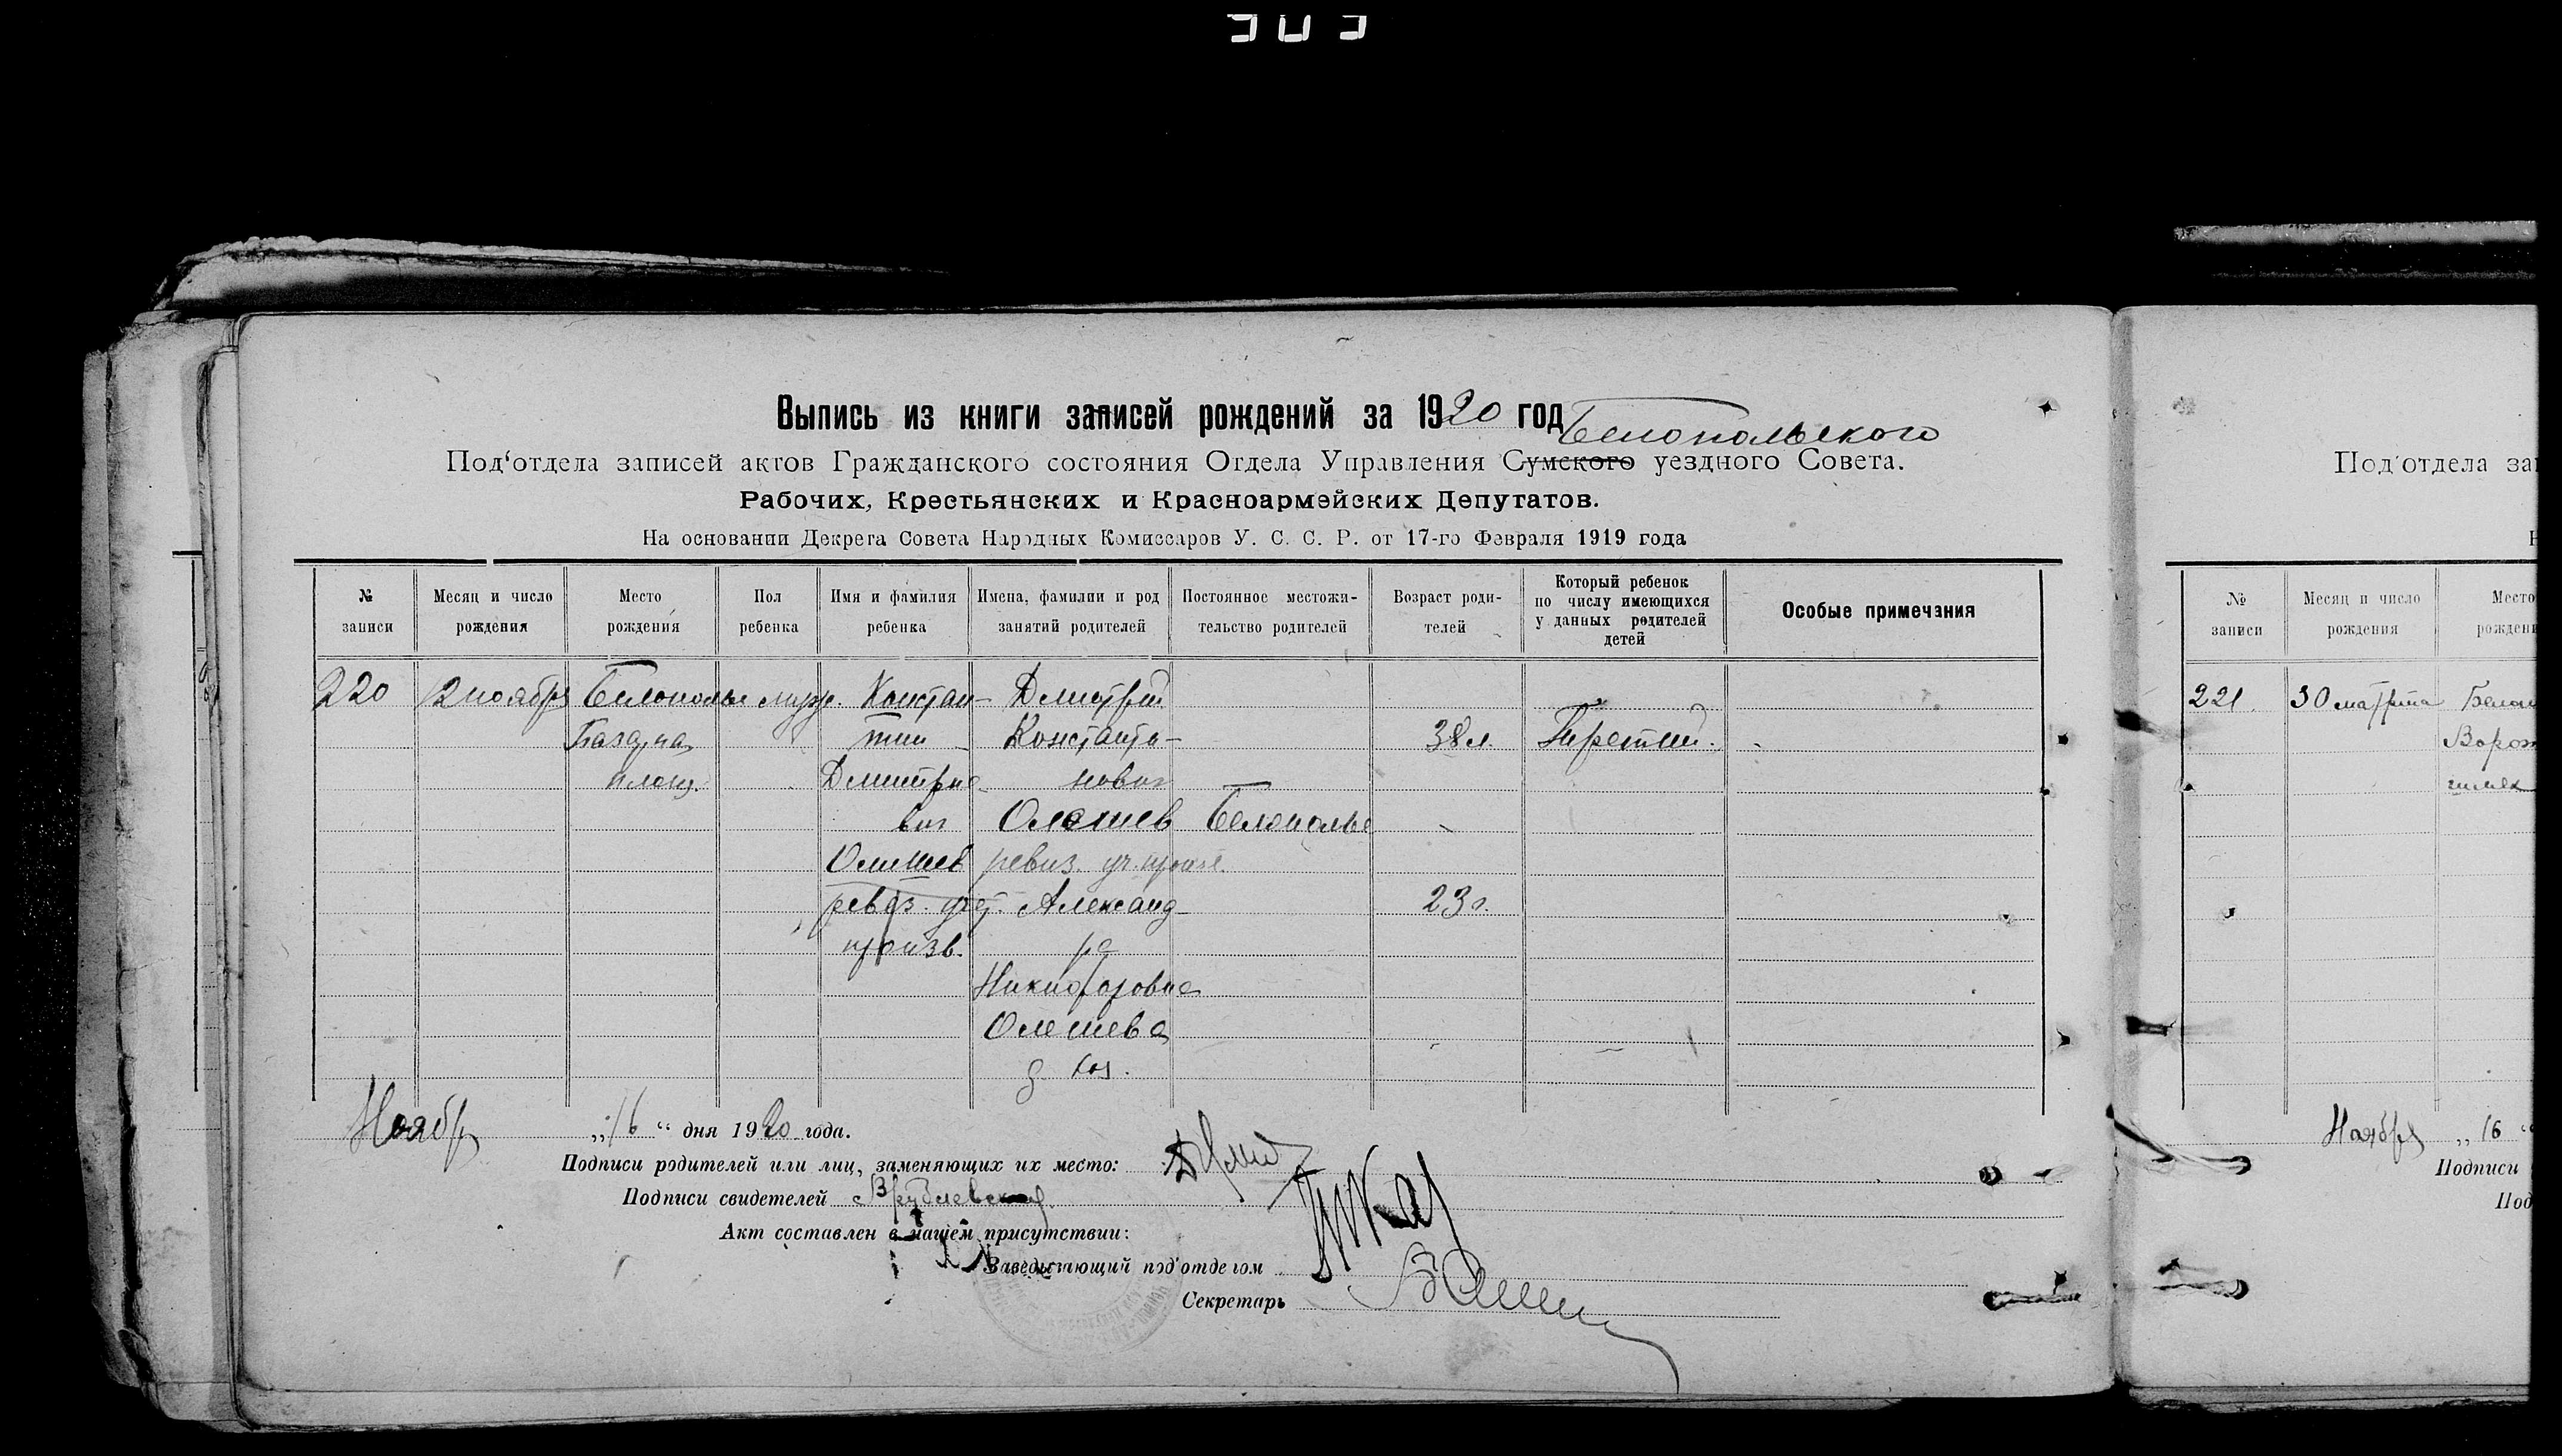 Выпись из книги записей рождений за 1920 год
Белопольского
Под‘отдела записей актов Гражданского состояния Отдела Управления Сумского уездного Совета.
Рабочих, Крестьянских и Красноармейских Депутатов.
На основании Декрета Совета Народных Комиссаров У. С. С. Р. от 17-го Февраля 1919 года
№ записи
Месяц и число рождения
Место рождения
Пол ребенка
Имя и фамилия ребенка
Имена, фамилии и род занятий родителей
Постоянное местожи-
тельство родителей
Возраст роди-
телей
Который ребенок
по числу имеющихся
у данных родителей
детей
Особые примечания
220
12 ноября
Белополье
Базарна
площ.
муж.
Констан-
тин
Дмитрие-
вич
Олешев
ревиз. учет.
произв.
Дмитрий
Константи-
нович
Олешев
ревиз. уч. произв.
Александ-
ра
Никифоровна
Олешева
д. хоз.
Белополье
38 л.
23 г.
Третий.
Ноябр „16“ дня 1920 года.
Подписи родителей или лиц, заменяющих их место:
Подписи свидетелей
Акт составлен в нашем присутствии:
Заведывающий под'отделом
Секретарь
Под'отдела за
№ записи
Месяц и число рождения
Место
рождени
221.
30 марта
Ноября „ 16 “
Подписи
Под